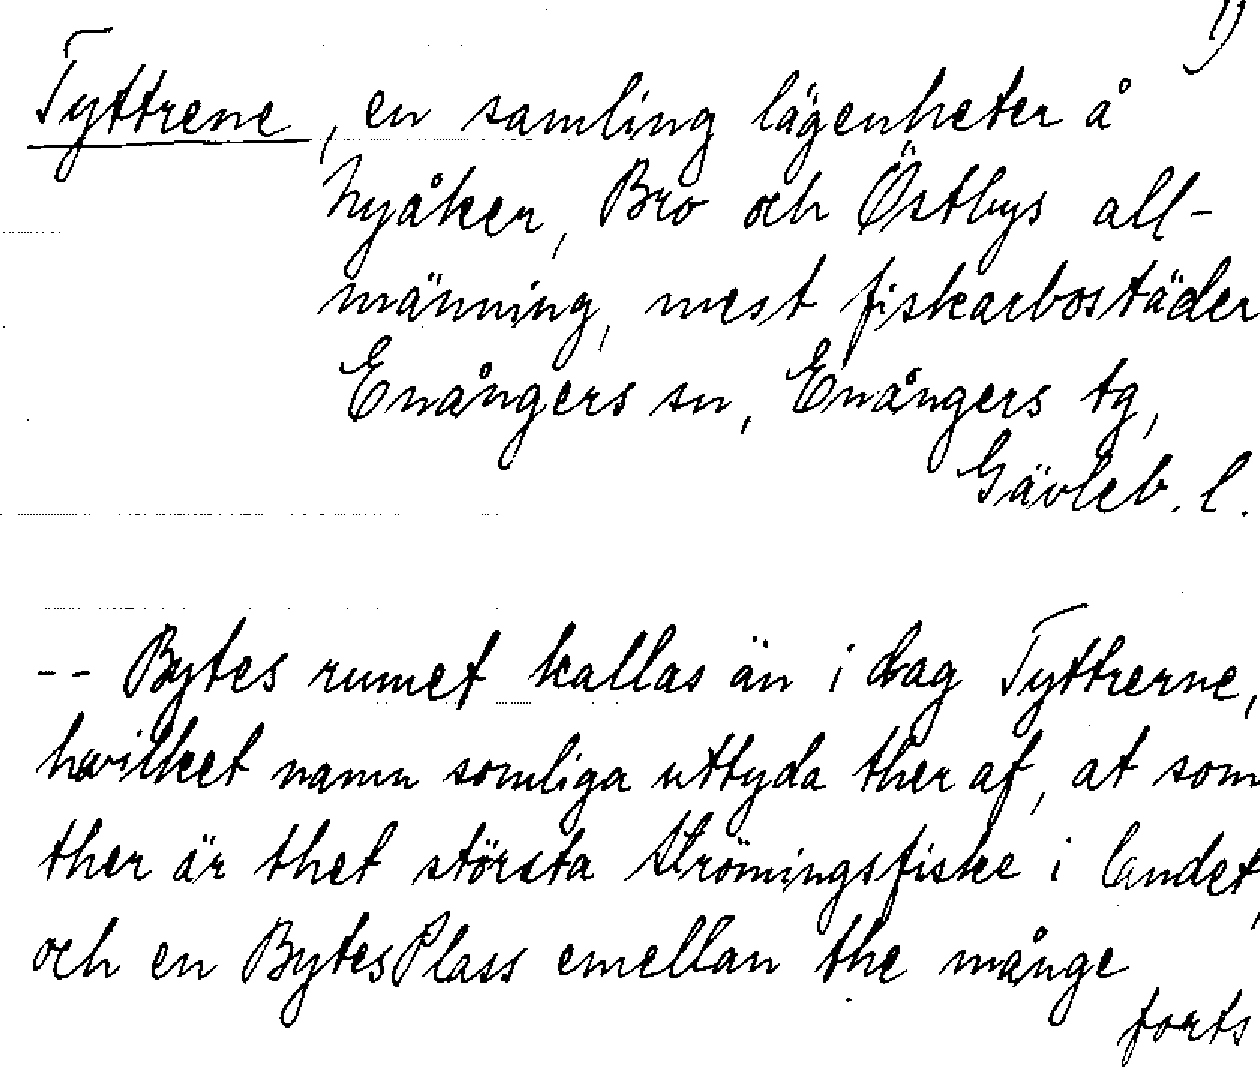 1)
Tyttrene, en samling lägenheter å
Nyåker, Bro och Östbys all-
männing, mest fiskarbostäder
Enångers sn, Enångers tg,
Gävleb. l.
-- Bytes rumet kallas än i dag Tyttrerne,
hwilket namn somliga uttyda ther af, at som
ther är thet största Strömingsfiske i landet,
och en BytesPlass emellan the månge
forts